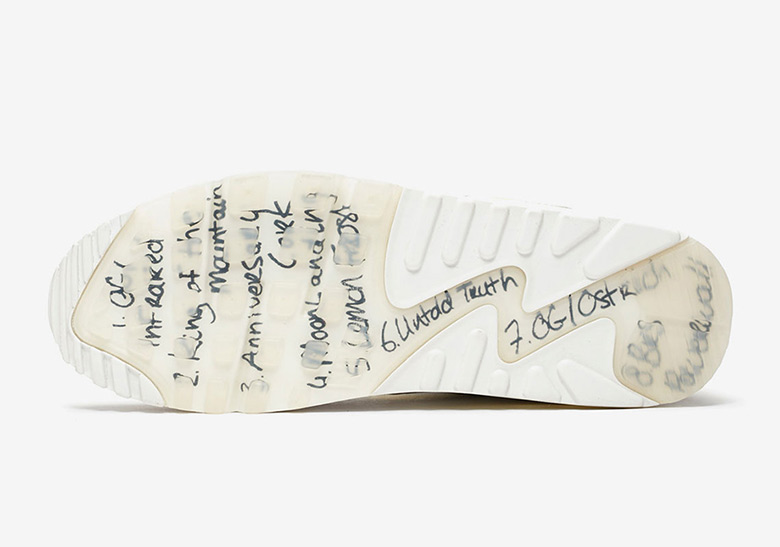 1. OG-1
infrared
2. King of the
mountain
3. Anniversary
Cork
4. Moon Landing
5 Lemon
6. Untold Truth
7. OG/Ostrich
8 Bac